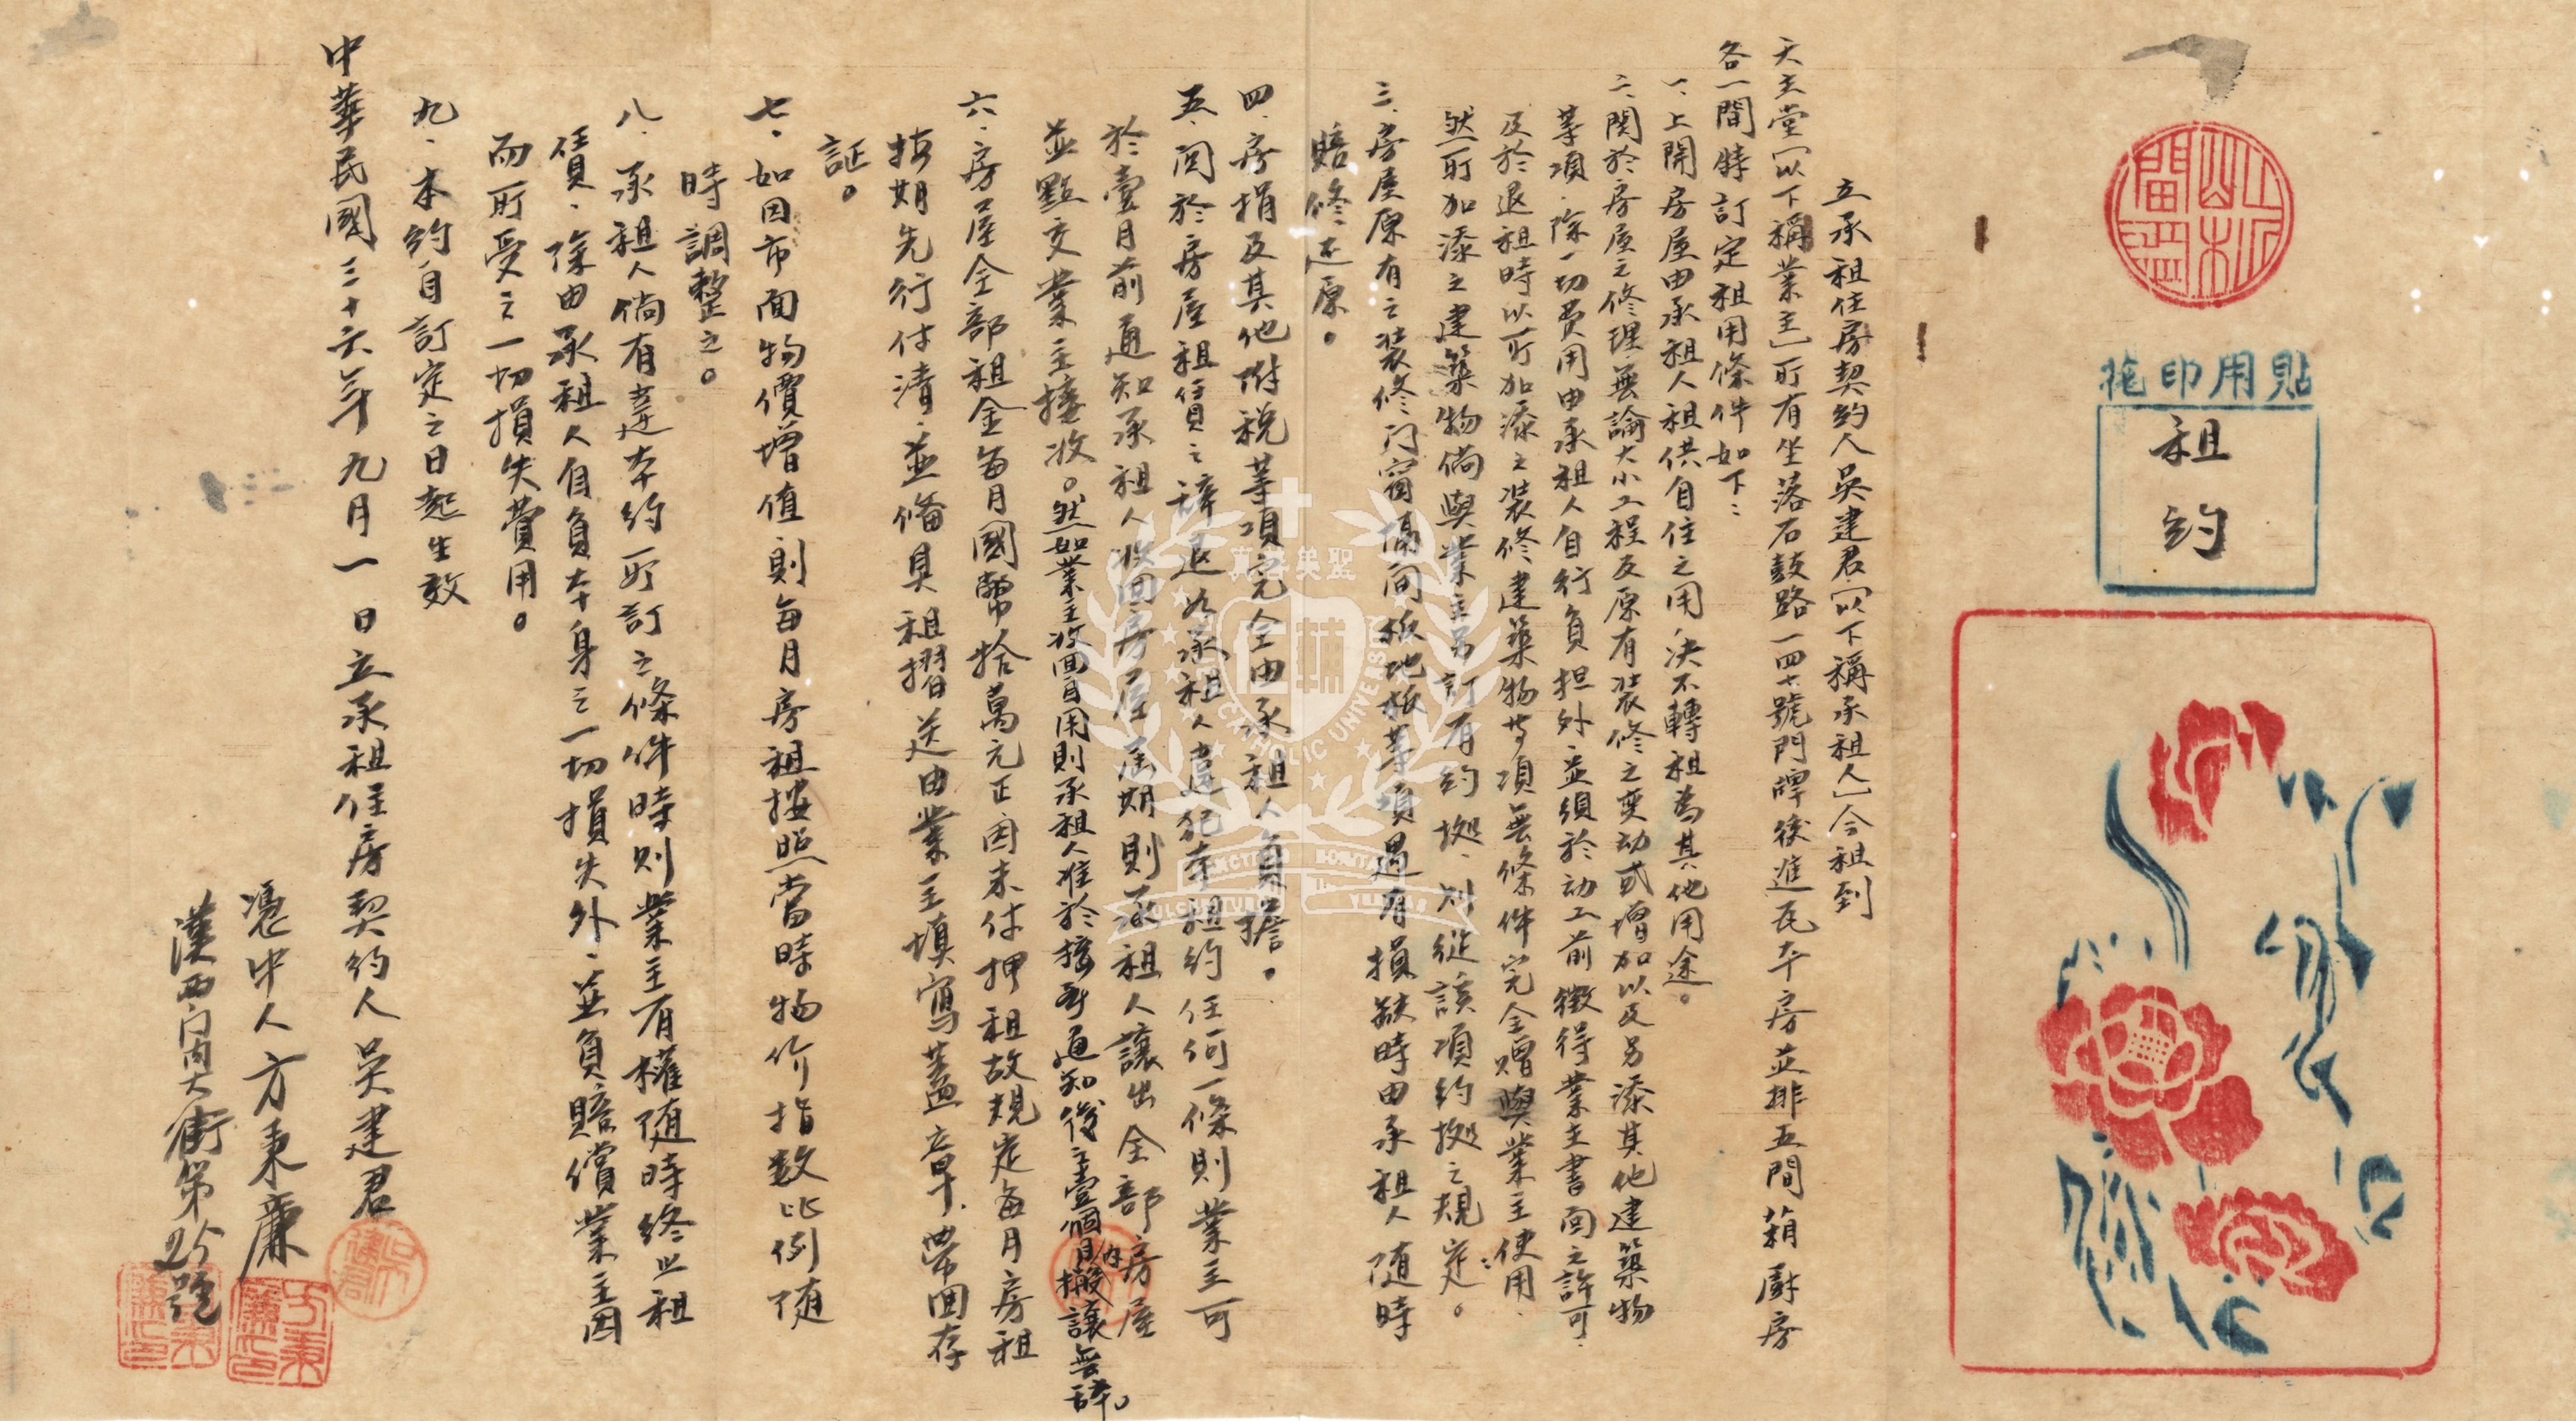 貼用印花
租約
立承租住房契約人吳建君(以下稱承租人)今租到
天主堂(以下稱業主)所有坐落石鼓路一四七號門牌後進瓦平房並排五間廂廚房
各一間特訂定租用條件如下:
一、上開房屋由承租人租供自住之用決不轉租為其他用途。
二、関於房屋之修理無論大小工程及原有裝修之変动或增加以及另添其他建築物
等項、除一切費用由承租人自行負担外並須於动工前徵得業主書面之許可、
及於退租時以所加添之装修建築物等項無條件完全贈與業主使用、
然所加添之建築物倘與業主另訂有約拠、则從該項約拠之規定。
三、房屋原有之裝修门窗隔间板地板等項遇有損缺時由承租人随時
賠修还原。
四、房捐及其他附稅等項完全由承租人負擔。
五、関於房屋租賃之辞退如承租人違犯本租約任何一條則業主可
於壹月前通知承租人收回房屋届期則承租人讓出全部房屋
並點交業主接收。然如業主收回自用則承租人准於接到通知後之壹個月內搬讓無辞。
六、房屋全部租金每月國幣拾萬元正因未付押租故規定每月房租
按期先行付清、並備具租摺送由業主填寫蓋章、帶回存
証。
七、如因市面物價增值則每月房租按照當時物价指数比例随
時調整之。
八、承租人倘有違本約所訂之條件時则業主有權随時終止租
賃、除由承租人自負本身之一切損失外、並負賠償業主因
而所受之一切損失費用。
九、本約自訂定之日起生效
中華民國三十六年九月一日立承租住房契約人吳建君
憑中人方秉廉
漢西门内大街第25號
吳建君印
方秉廉印
方秉廉印
聖英善真
CATHOLIC UNIVERSITY